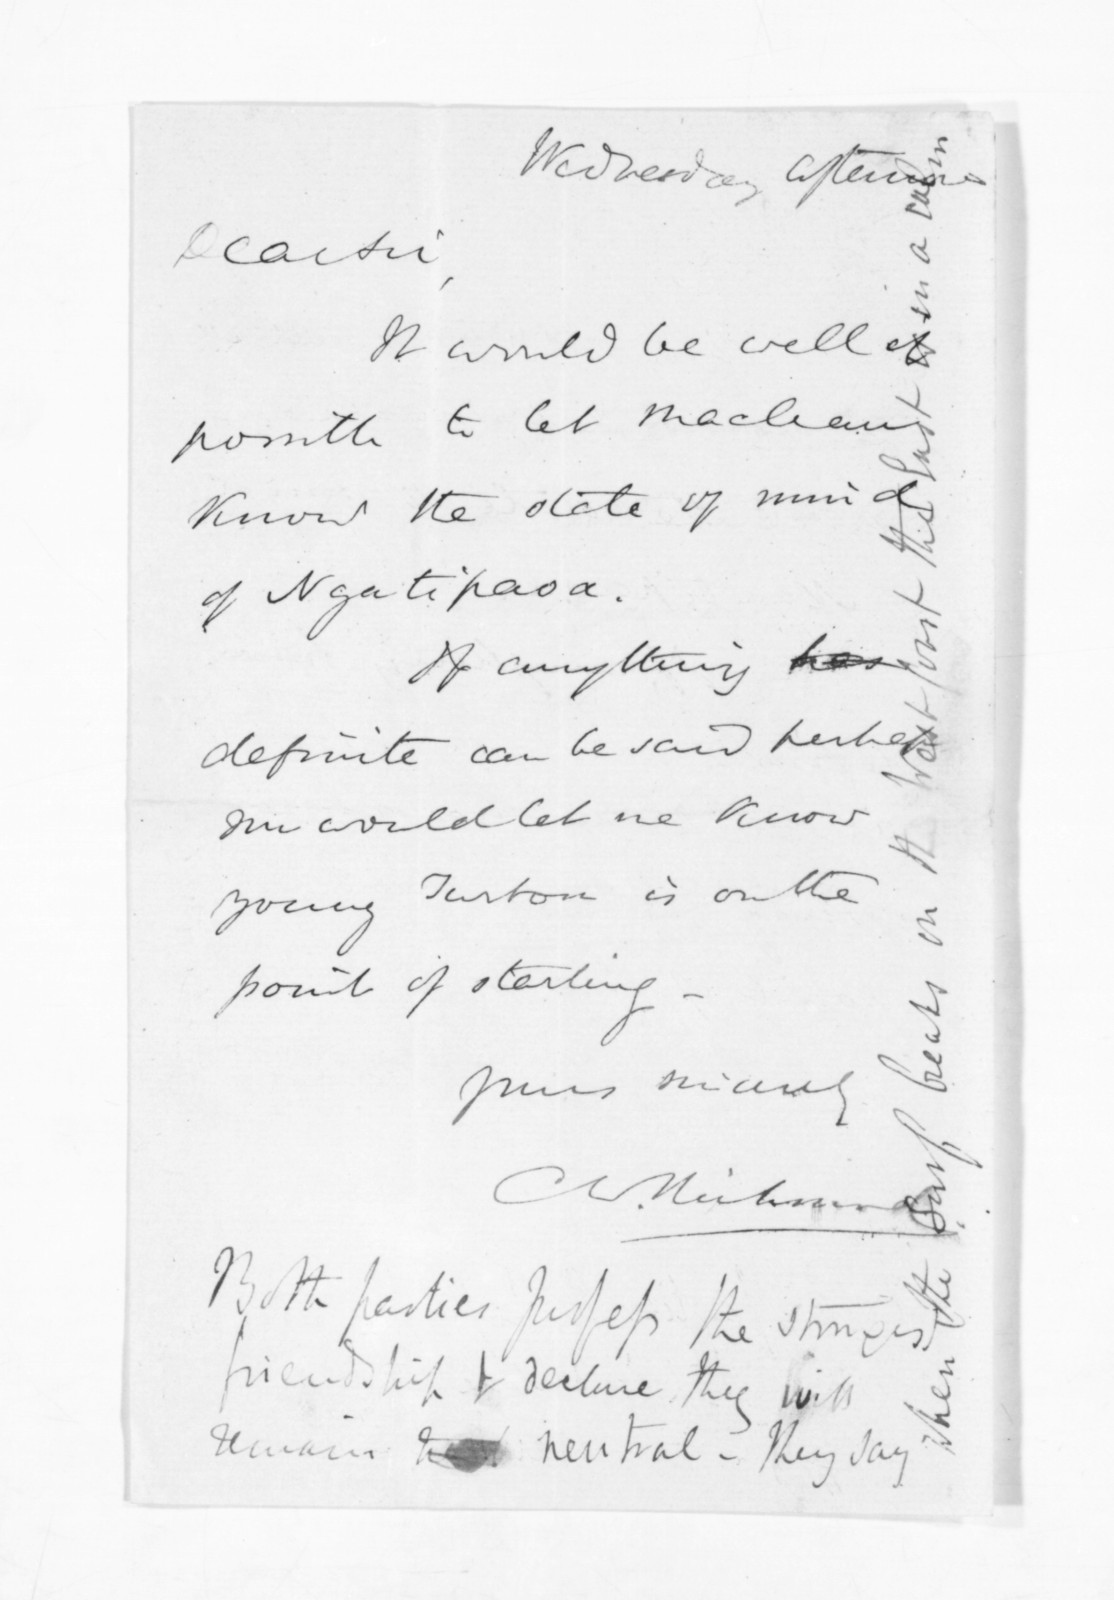 Wednesday afternoon
Dear Sir,
It would be well if
possible to let Maclean
know the state of mind
of Ngatipaoa.
If anything has
definite can be said perhaps
you would let me know
young Turton is on the
point of starting -
yours sincerely
C W. Richmond
Both parties profess the strongest
friendship & declare they will
remain neutral - They say
when the surf breaks on the West coast the East is in a calm